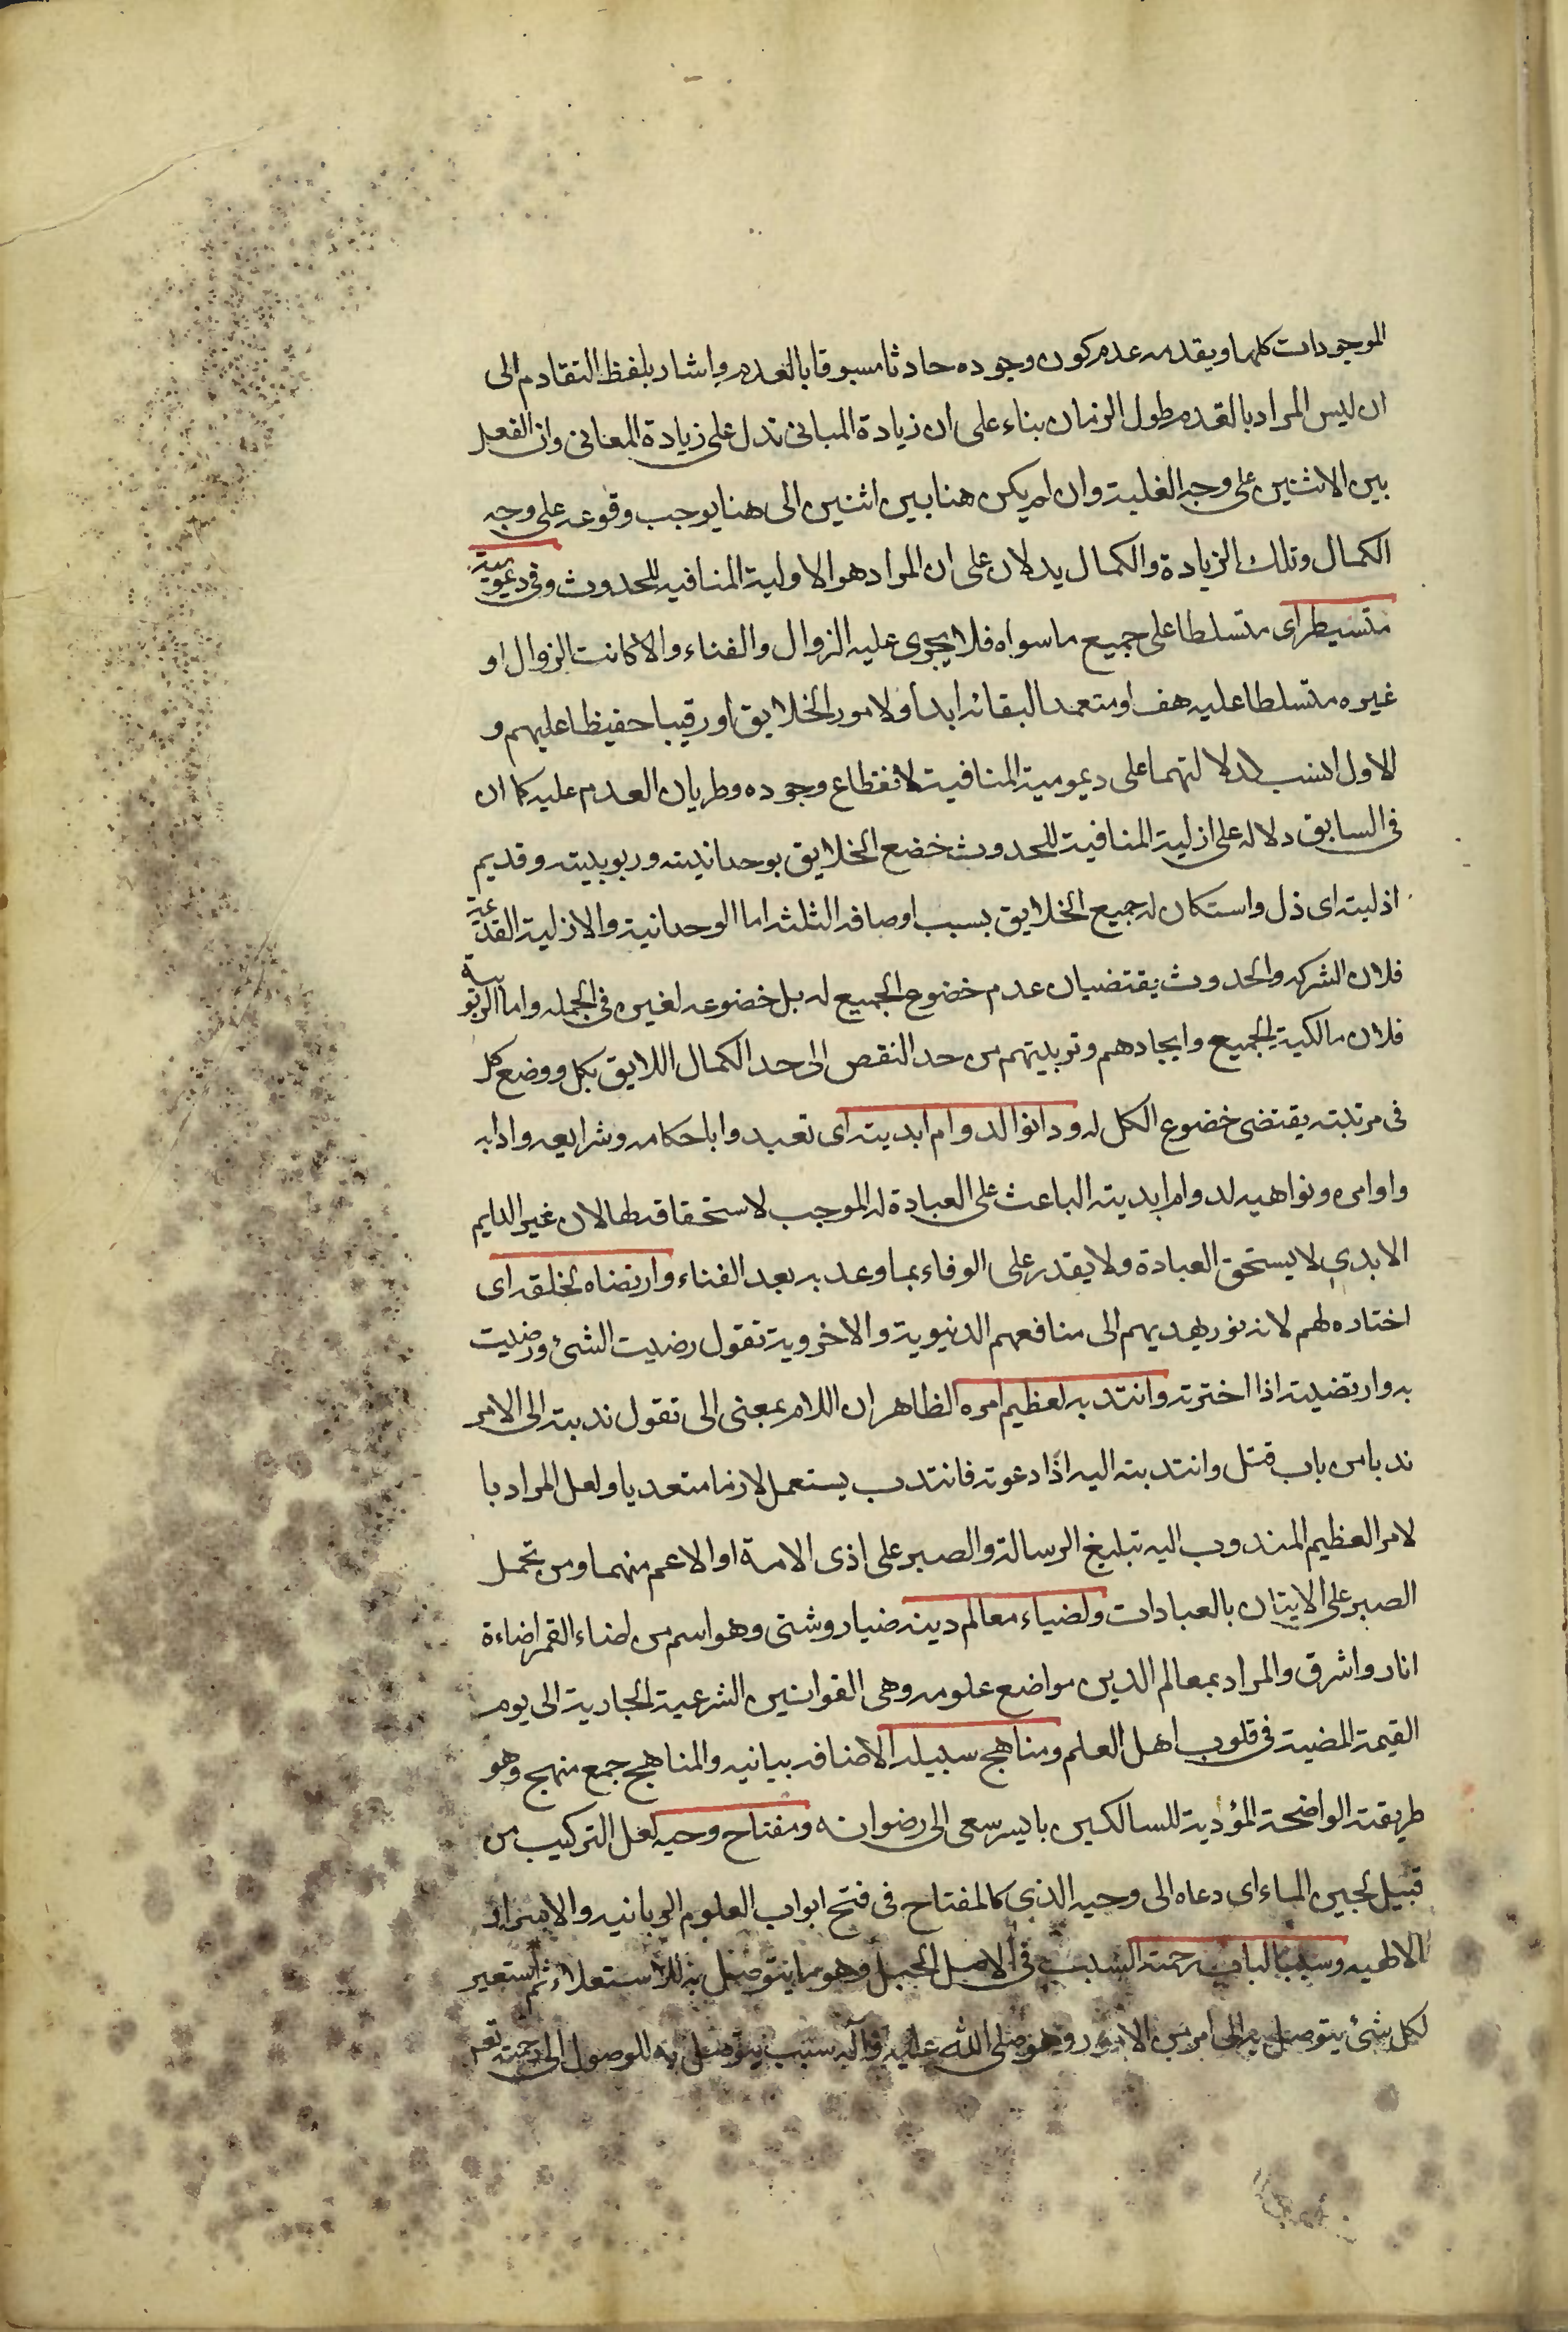 الموجودات كلها وبقدمه عدم كون وجوده حادثا مسبوقا بالعدم واشار بلفظ التقادم الى
ان ليس المراد بالقدم طول الزمان بناء على ان زيادة المبانى تدل على زيادة المعانى وان الفعل
بين الاثنين على وجه الغلبة وان لم يكن هنا بين اثنين الى هنا يوجب وقوعه على وجه
الكمال وتلك الزيادة والكمال يدلان على ان المراد هو الاولية المنافيه للحدوث وفى ديمومية
متسيطرا اى متسلطا على جميع ما سواه فلا يجرى عليه الزوال والفناء والا كانت الزوال او
غيره متسلطا عليه هف او متعمدا لبقائه ابدا ولامور الخلايق او رقيبا حفيظا عليهم و
الاول انسب لدلالتهما على ديمومية المنافية لانقطاع وجوده وطريان العدم عليه كما ان
فى السابق دلاله على ازلية المنافية للحدوث خضع الخلايق بوحدانيته وربوبيته وقديم
ازليته اى ذل واستكان له جميع الخلايق بسبب اوصافه الثلثه اما الوحدانية والازلية القديمة
فلان الشركه والحدوث يقتضيان عدم خضوع الجميع له بل خضوعه لغيره فى الجمله واما الربوبية
فلان مالكية الجميع وايجادهم وتربيتهم من حد النقص الى حد الكمال اللايق بكل ووضع كل
فى مرتبته يقتضى خضوع الكل له ودانوا لدوام ابديته اى تعبدوا باحكامه وشرايعه وادابه
واوامره ونواهيه لدوام ابديته الباعث على العبادة له الموجب لاستحقاقه لها لان غير الدايم
الابدى لا يستحق العبادة ولا يقدر على الوفاء بما وعد به بعد الفناء وارتضاه لخلقه اى
اختاره لهم لانه نور يهديهم الى منافعهم الدنيوية والاخروية تقول رضيت الشئ ورضيت
به وارتضيته اذا اخترته وانتدبه لعظيم امره الظاهر ان اللام بمعنى الى تقول ندبته الى الامر
ندبا من باب قتل وانتدبته اليه اذا دعوته فانتدب يستعمل لازما متعديا ولعل المراد با
لامر العظيم المندوب اليه تبليغ الرسالة والصبر على اذى الامة او الاعم منهما ومن تحمل
الصبر على الايتان بالعبادات ولضياء معالم دينه ضيا روشنى وهو اسم من اضاء القمر اضاءة
انار واشرق والمراد بمعالم الدين مواضع علومه وهى القوانين الشرعية الجارية الى يوم
القيمة المضية فى قلوب اهل العلم ومناهج سبيله الاضافه بيانيه والمناهج جمع منهج وهو
طريقته الواضحة المؤدية للسالكين بايسر سعى الى رضوانه ومفتاح وحيه لعل التركيب من
قبيل لجين الماء اى دعاه الى وحيه الذى كالمفتاح فى فتح ابواب العلوم الربانيه والاسرار
الالهيه وسببا لباب رحمته السبب فى الاصل الحبل وهو ما يتوصل به للاستعلاء ثم استعير
لكل شئ يتوصل به الى امر من الامور وهو صلى الله عليه وآله سبب يتوصل به للوصول الى رحمته